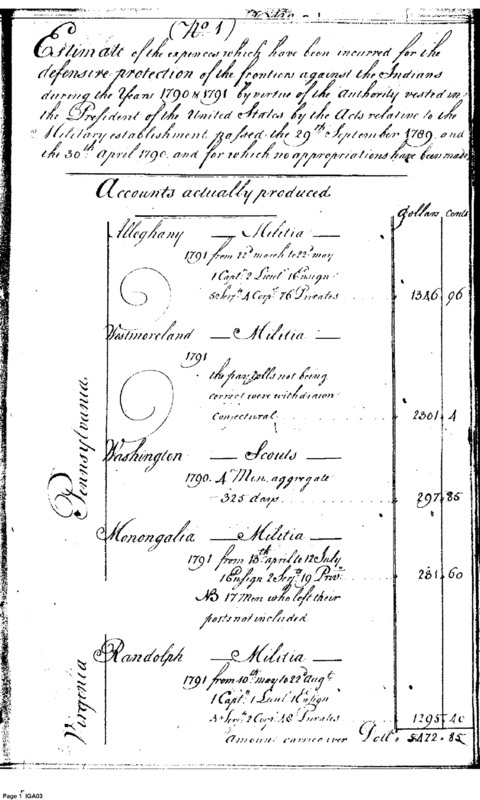 (No 1)
Estimate of the expences which have been incurred for the
defensive protection of the frontiers against the Indians
during the Years 1790 & 1791 by virtue of the Authority vested in
the President of the United States by the Acts relative to the
Military establishment, passed the 29th September 1789, and
the 30th April 1790, and for which no appropriations have been made
Accounts actually produced
dollars cents
Pennsylvania
Alleghany — Militia —
1791 from 22d march to 22d may
1 Capt. 2 Lieut 1 Ensign
5 Serjts 4 Corpl 76 Privates 1346 96
Westmoreland — Militia —
1791
the pay rolls not being
correct were withdrawn
conjectural 2301 4
Washington — Scouts —
1790. 4 Men, aggregate
325 days 297 85
Virginia
Monongalia — Militia —
1791 from 18th april to 12 July
1 Ensign 2 Serjts 19 Privs 231 60
NB 17 Men who left their
posts not included
Randolph — Militia —
1791 from 10th may to 22d Augt
1 Capt. 1 Lieut 1 Ensign
Serjts 2 Corpl Privates 1295 40
Amount carried over Dolls 5472 85
Page 1 IGA03